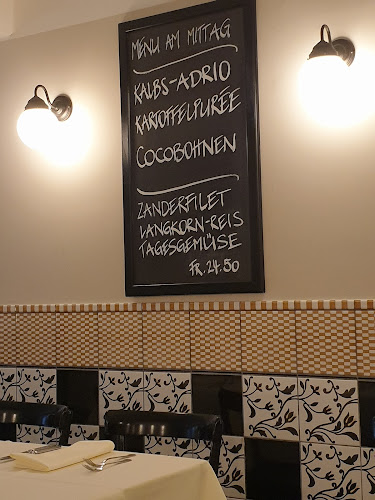 MENU AM MITTAG
KALBS-ADRIO
KARTOFFELPURÉE
COCOBOHNEN
ZANDERFILET
LANGKORN-REIS
TAGESGEMÜSE
FR. 24.50